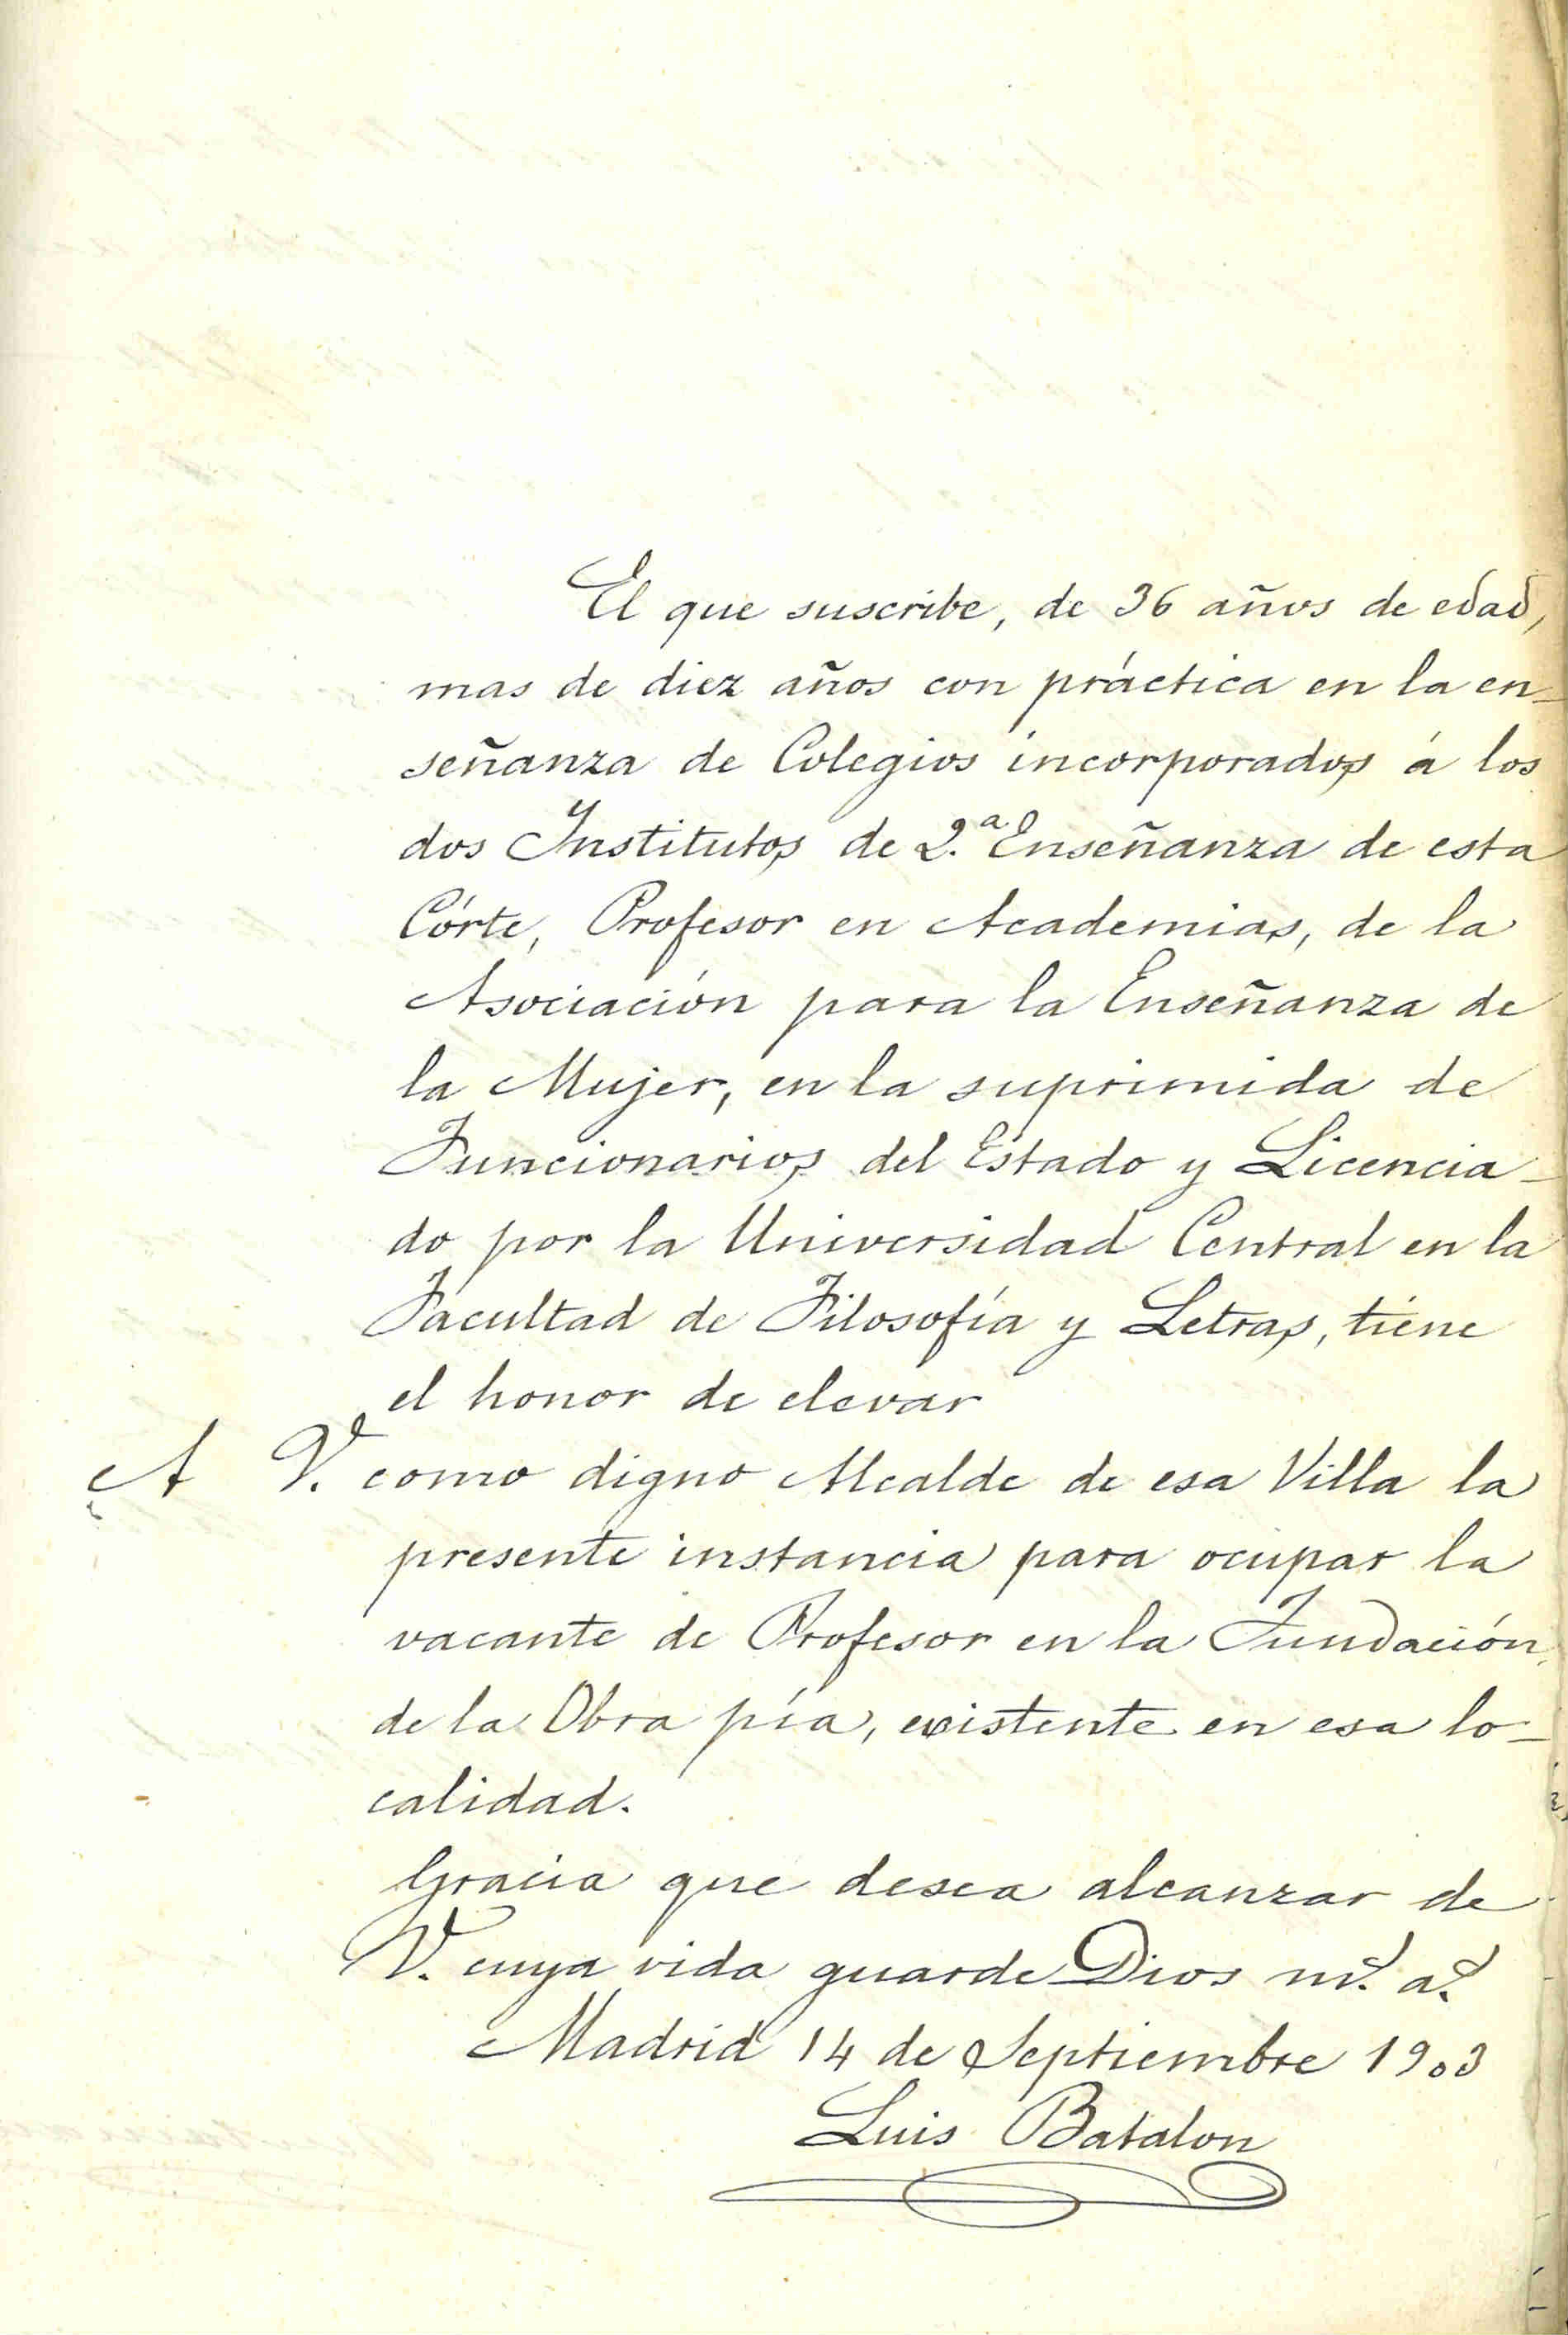 El que suscribe, de 36 años de edad,
mas de diez años con práctica en la en-
señanza de Colegios incorporados á los
dos Institutos de 2.ª Enseñanza de esta
Córte, Profesor en Academias, de la
Asociación para la Enseñanza de
la Mujer, en la suprimida de
Funcionarios del Estado y Licencia-
do por la Universidad Central en la
Facultad de Filosofía y Letras, tiene
el honor de elevar
A V. como digno Alcalde de esa Villa la
presente instancia para ocupar la
vacante de Profesor en la Fundación
de la Obra pía, existente en esa lo-
calidad.
Gracia que desea alcanzar de
V. cuya vida guarde Dios ms. as.
Madrid 14 de Septiembre 1903
Luis Batalon